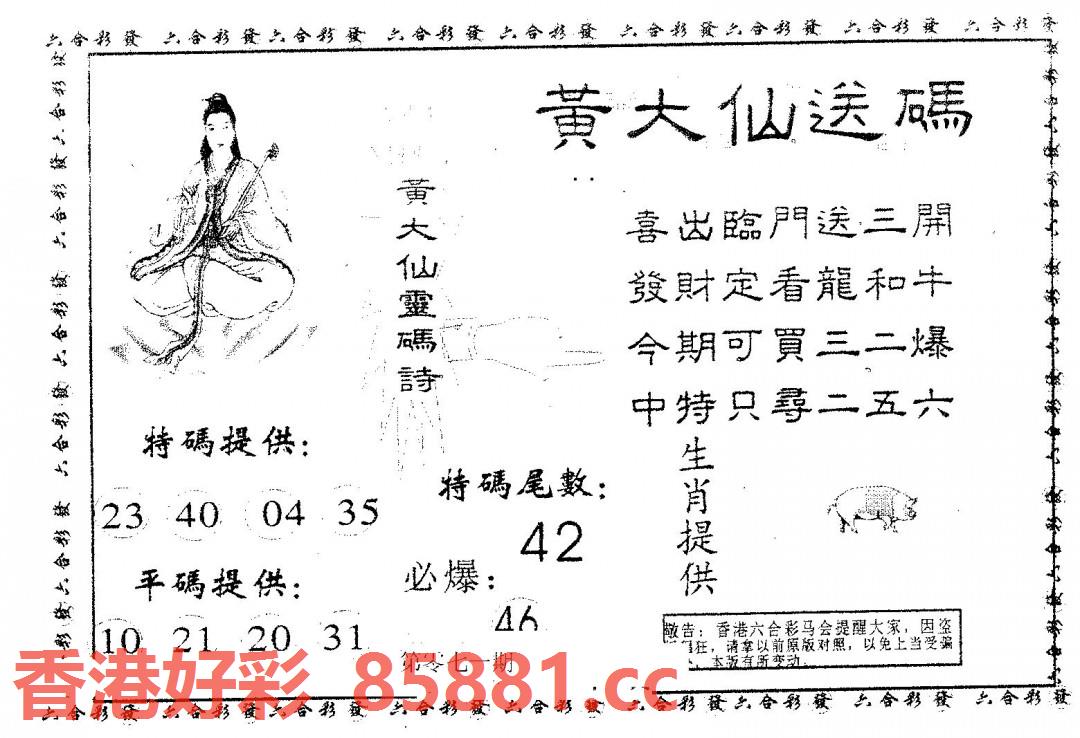 六合彩發 六合彩發六合彩發 六合彩發 六合彩發 六合彩發六合彩發 六合彩發 六合彩發
黃大仙送碼
黃大仙靈碼詩
喜出臨門送三開
發財定看龍和牛
今期可買三二爆
中特只尋二五六
特碼提供：
23 40 04 35
特碼尾數：
42
生肖提供
平碼提供：
10 21 20 31
必爆：
46
第零七一期
敬告：香港六合彩马会提醒大家，因盗
狂，请拿以前原版对照，以免上当受骗
本版有所变动
香港好彩 85881.cc
六合彩發 六合彩發六合彩發 六合彩發 六合彩發 六合彩發六合彩發 六合彩發 六合彩發